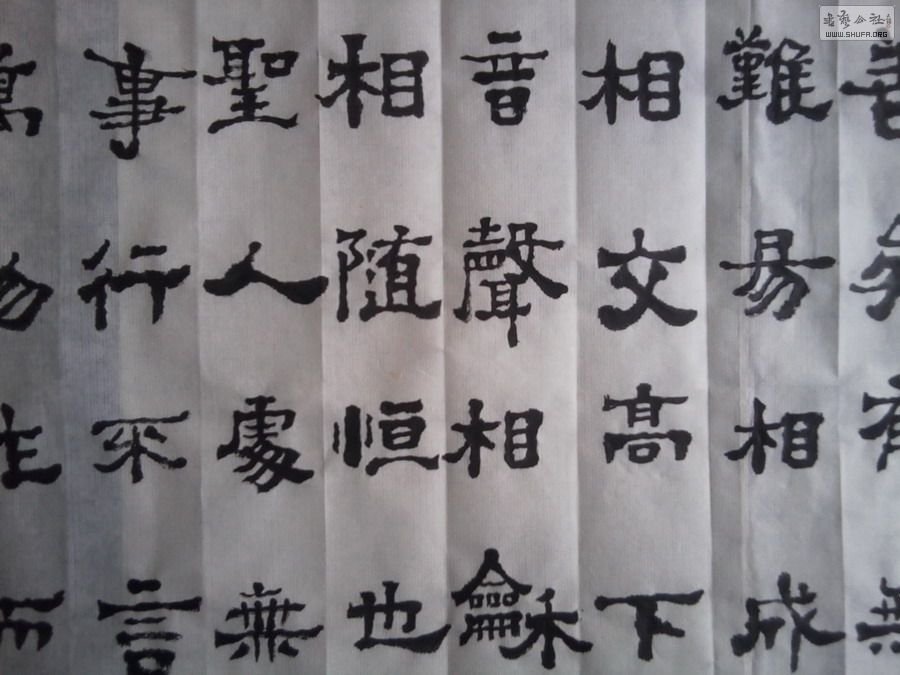 善矣有無
難易相成
相交高下
音聲相龢
相随恒也
聖人處無
事行不言
萬物作而
書藝公社
WWW.SHUFA.ORG